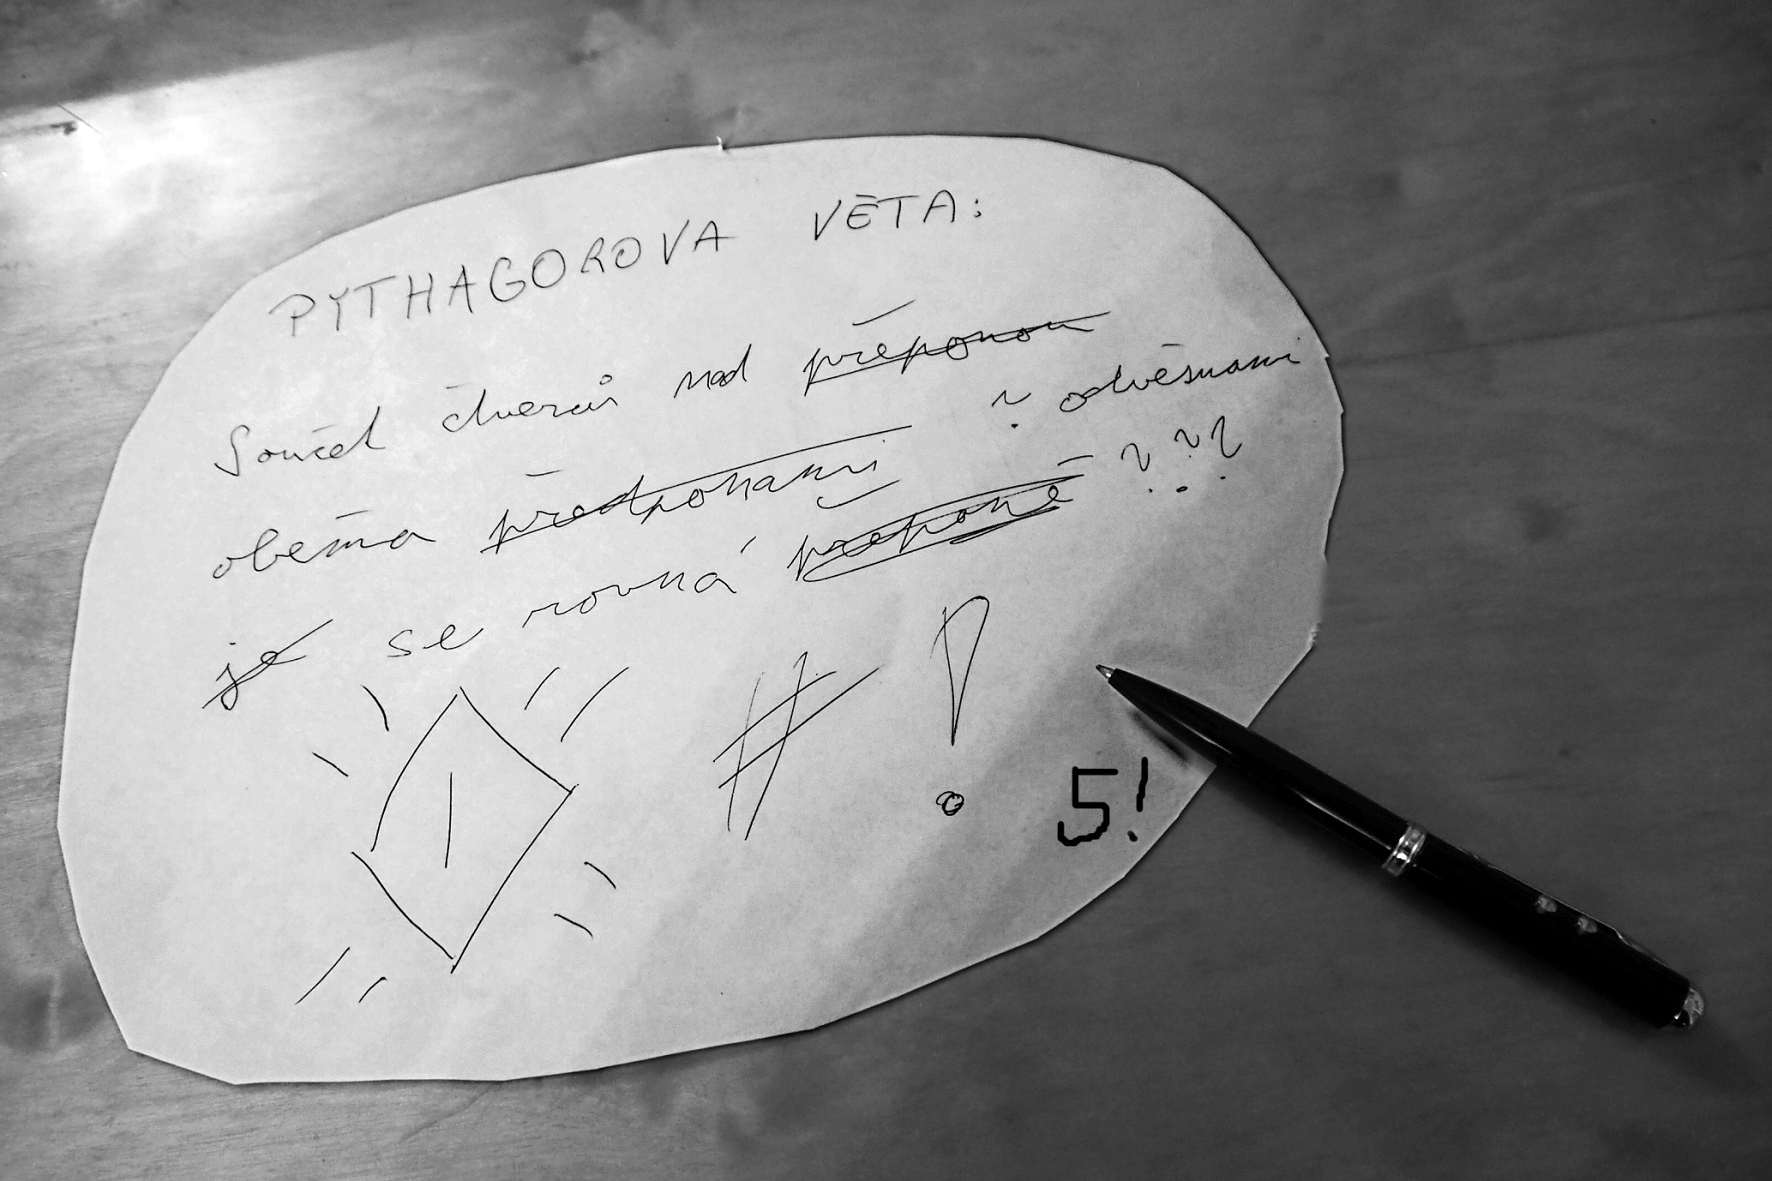 PYTHAGOROVA VĚTA:
Součet čtverců nad přeponou
oběma předponami ? odvěsnami
je se rovná přeponě ???
# !
5!